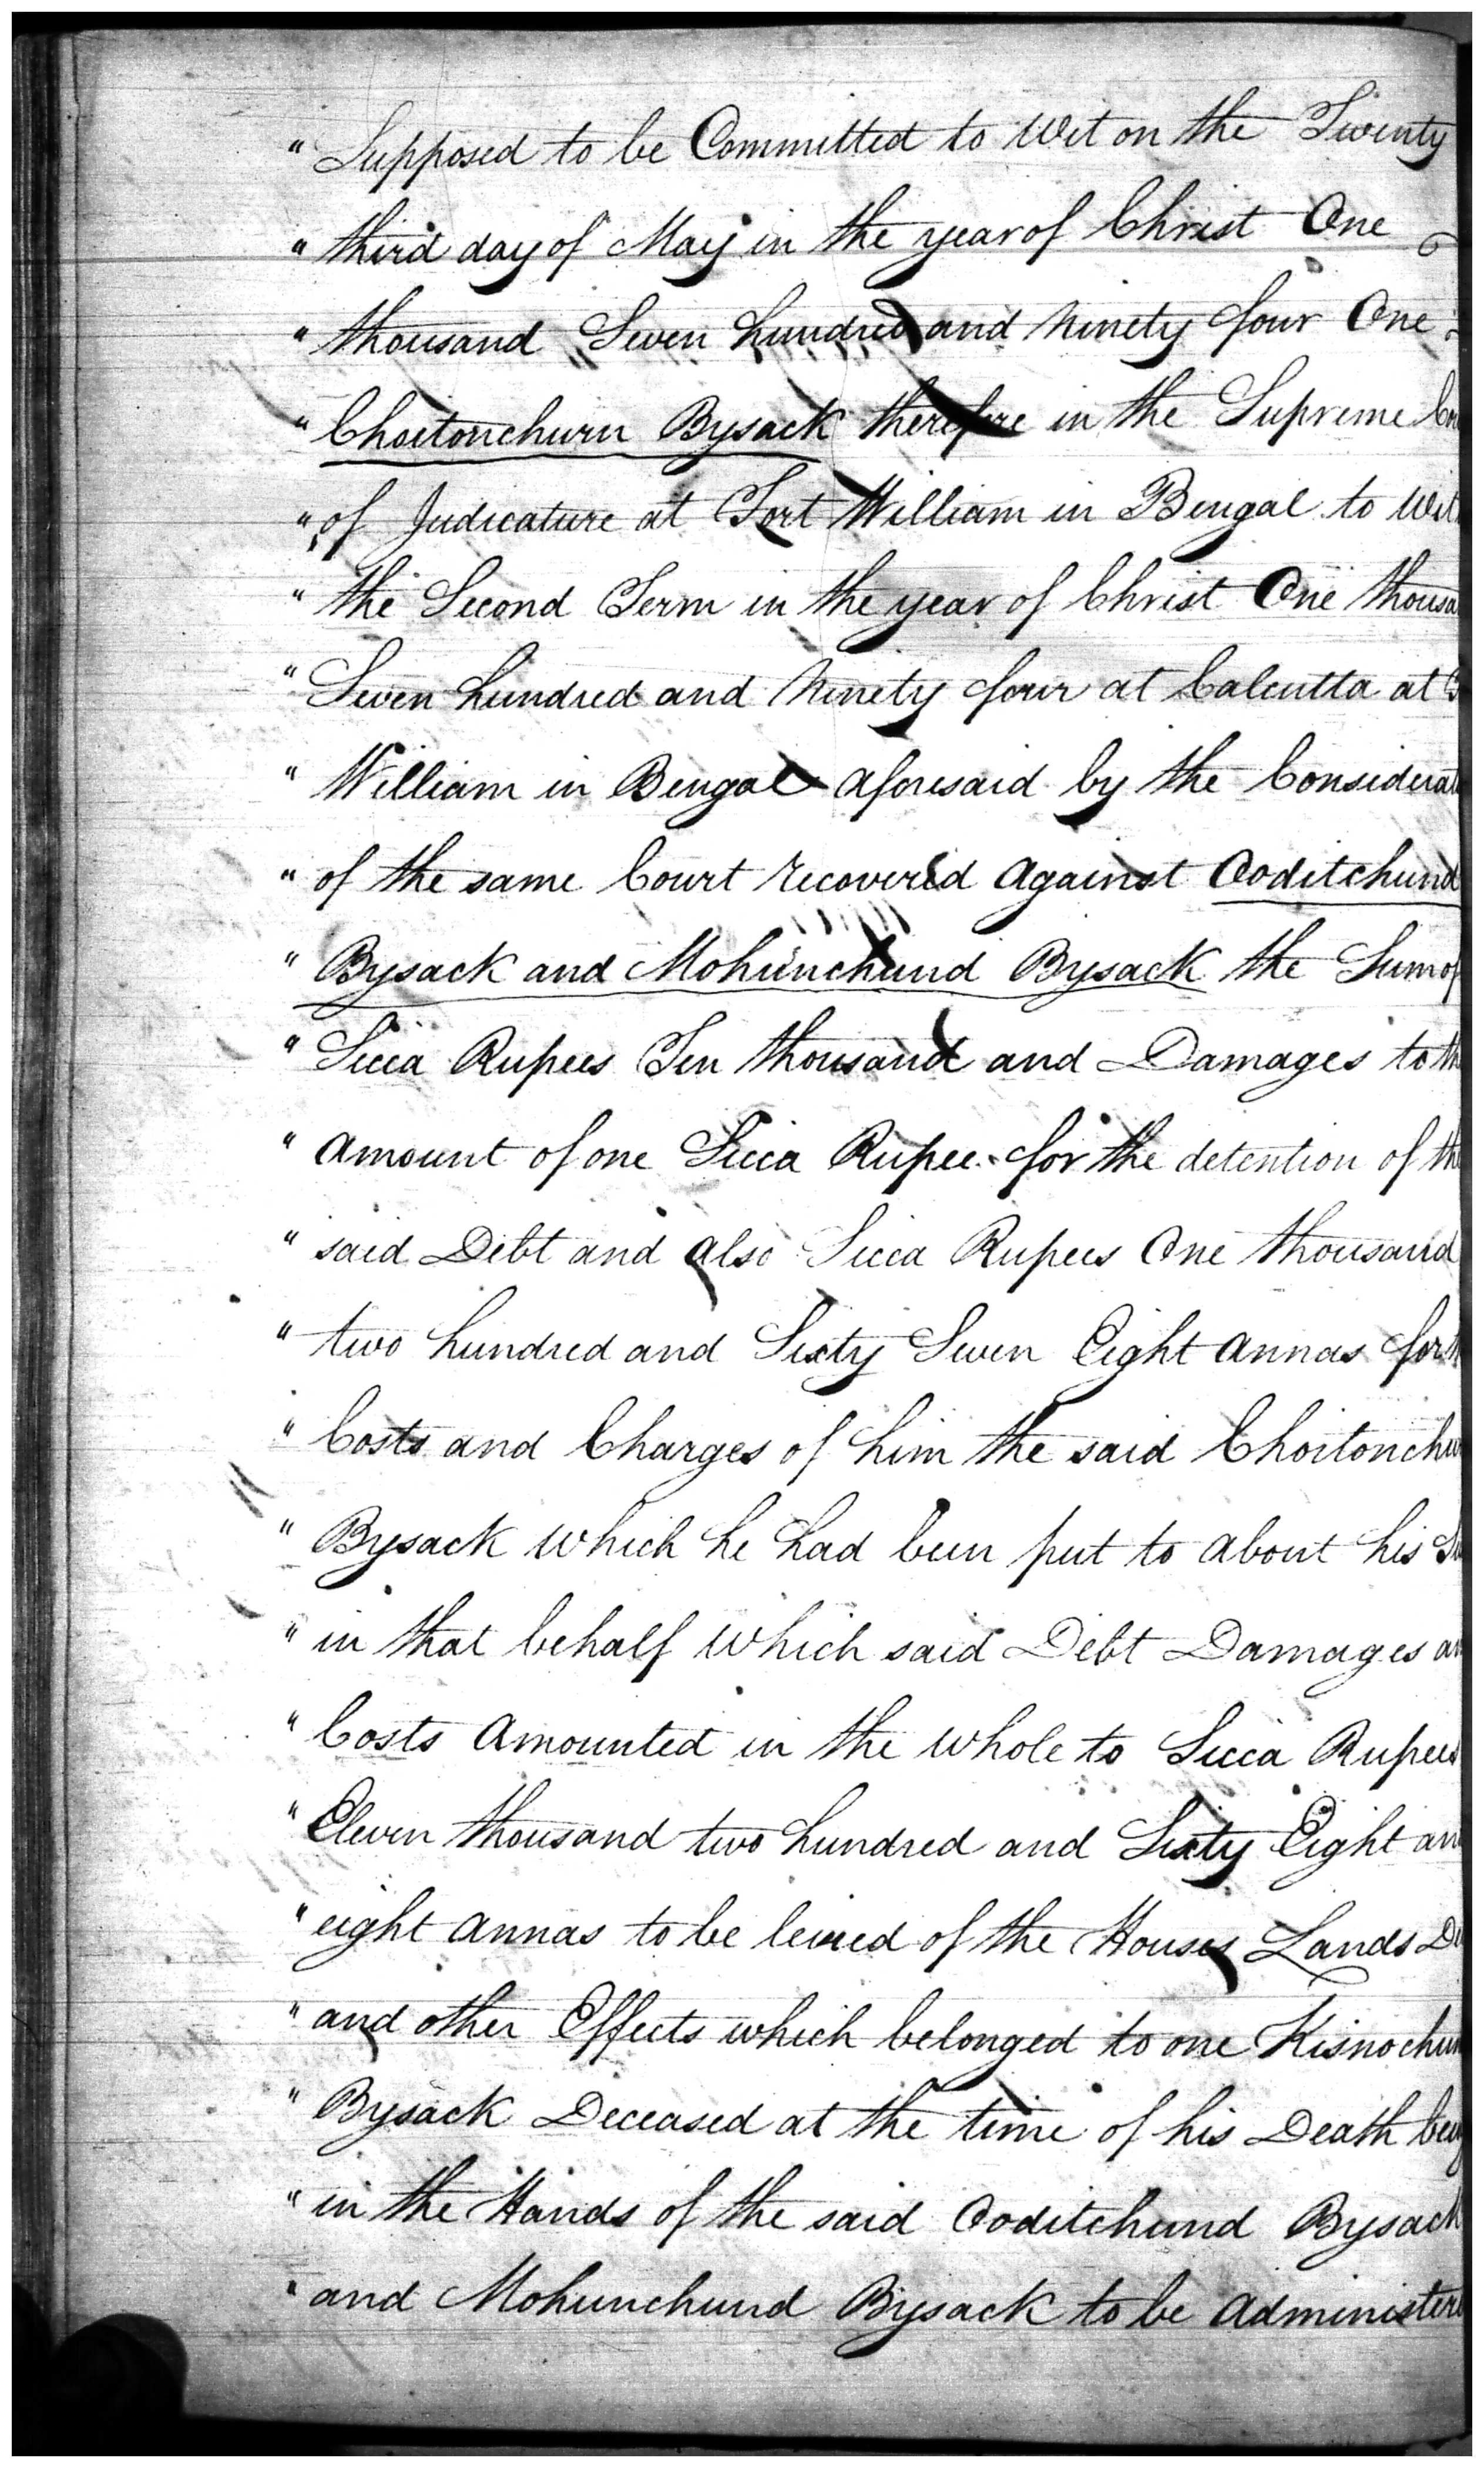 " Supposed to be Committed to Wit on the Twenty
" third day of May in the year of Christ One
" thousand Seven hundred and Ninety four One
" Choitonchurn Bysack therefore in the Supreme
" of Judicature at Fort William in Bengal to Wit
" the Second Term in the year of Christ One thousa
" Seven hundred and Ninety four at Calcutta at
" William in Bengal aforesaid by the Considerat
" of the same Court recovered against Ooditchund
" Bysack and Mohunchund Bysack the Sum of
" Sicca Rupees Ten thousand and Damages to th
" amount of one Sicca Rupee for the detention of th
" said Debt and also Sicca Rupees One thousand
" two hundred and Sixty Seven Eight annas for
" Costs and Charges of him the said Choitonchu
" Bysack which he had been put to about his Su
" in that behalf which said Debt Damages an
" Costs amounted in the whole to Sicca Rupees
" Eleven thousand two hundred and Sixty Eight an
" eight annas to be levied of the Houses Lands De
" and other Effects which belonged to one Kisnochun
" Bysack Deceased at the time of his Death bein
" in the Hands of the said Ooditchund Bysack
" and Mohunchund Bysack to be administere